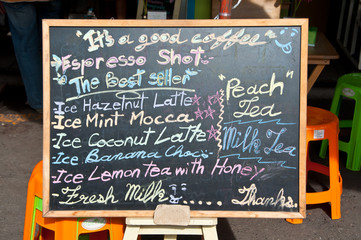 "It's a good coffee"
Espresso Shot
"The best seller"
Ice Hazelnut Latte
Ice Mint Mocca
Ice Coconut Latte
Ice Banana Choc
Ice Lemon tea with Honey
Fresh Milk
"Peach"
Tea
Milk Tea
Thanks.